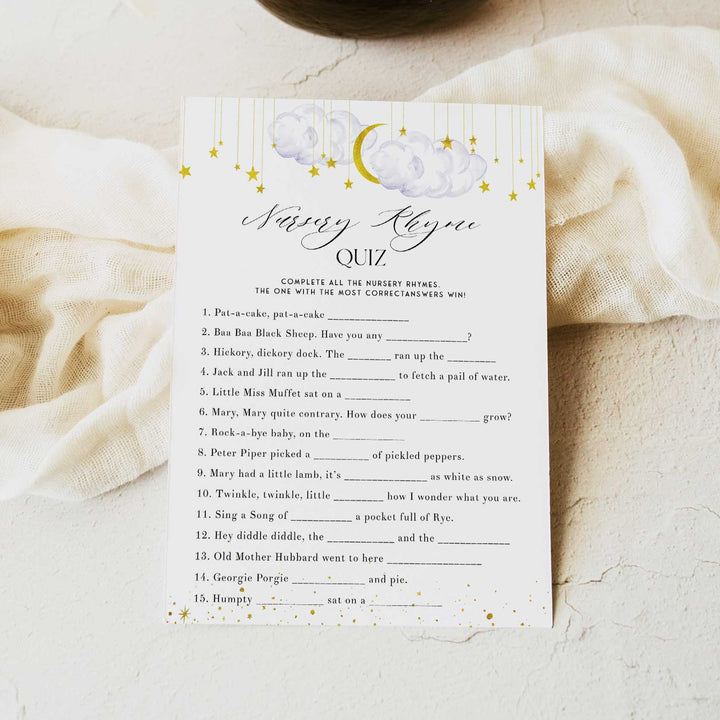 Nursery Rhyme
QUIZ
COMPLETE ALL THE NURSERY RHYMES.
THE ONE WITH THE MOST CORRECTANSWERS WIN!
1. Pat-a-cake, pat-a-cake ______________
2. Baa Baa Black Sheep. Have you any ______________?
3. Hickory, dickory dock. The ________ ran up the _________
4. Jack and Jill ran up the ____________ to fetch a pail of water.
5. Little Miss Muffet sat on a ____________
6. Mary, Mary quite contrary. How does your ___________ grow?
7. Rock-a-bye baby, on the _____________
8. Peter Piper picked a __________ of pickled peppers.
9. Mary had a little lamb, it's _______________ as white as snow.
10. Twinkle, twinkle, little _________ how I wonder what you are.
11. Sing a Song of ___________ a pocket full of Rye.
12. Hey diddle diddle, the ____________ and the _____________
13. Old Mother Hubbard went to here _________________
14. Georgie Porgie _____________ and pie.
15. Humpty ____________ sat on a _____________